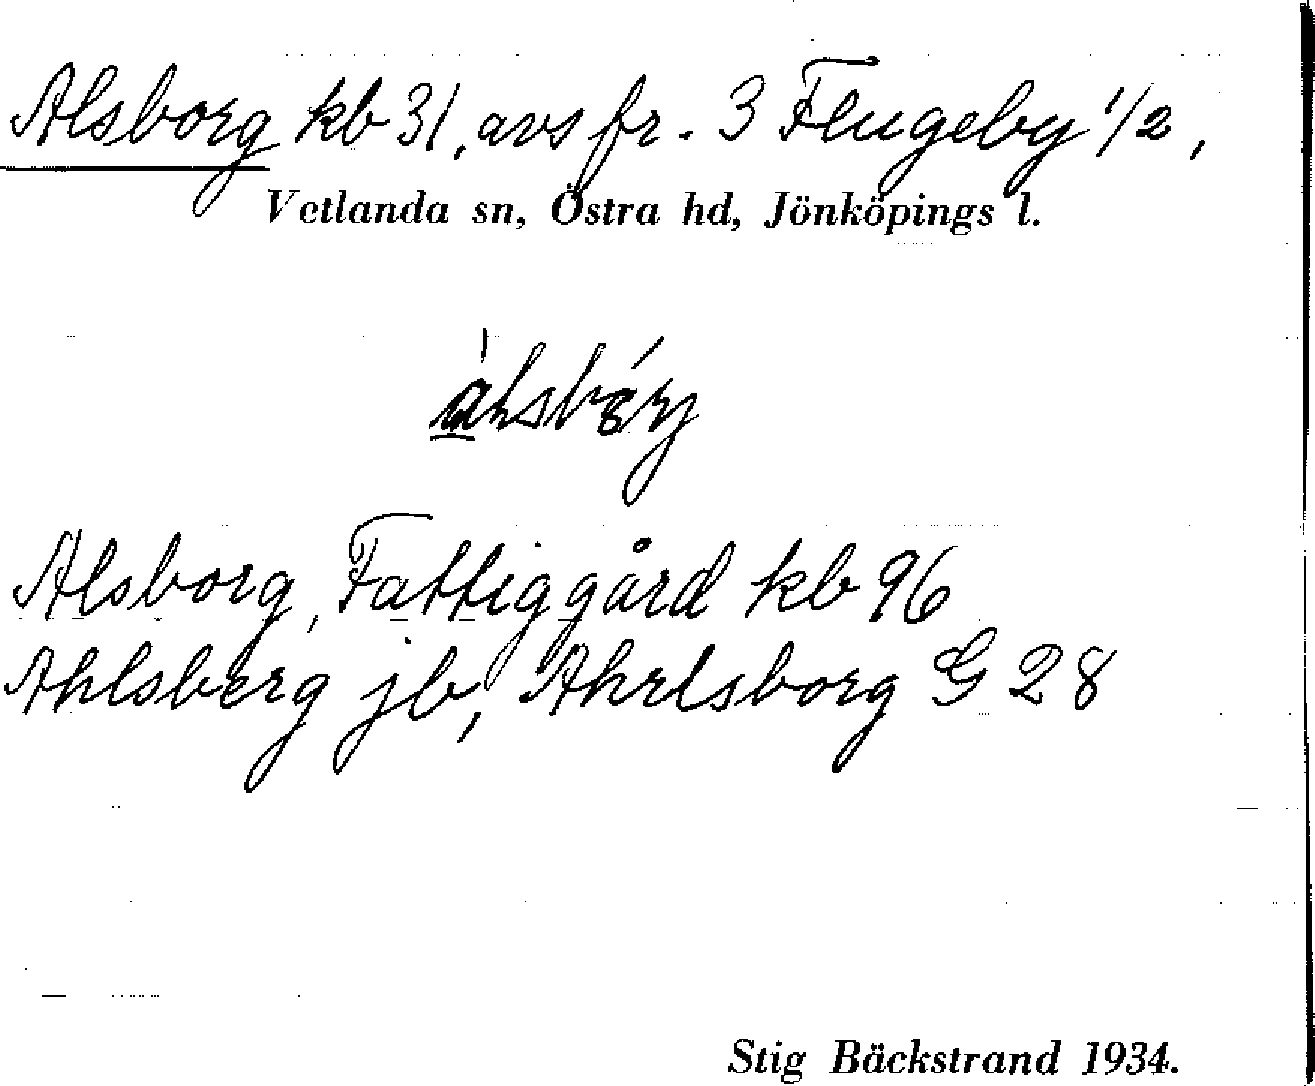 Alsborg kb 31, avs fr. 3 Flugeby 1/2,
Vetlanda sn, Östra hd, Jönköpings l.
Alsborg, Fattiggård kb 96
Ahlsberg jb, Ahrlsborg G 28
Stig Bäckstrand 1934.